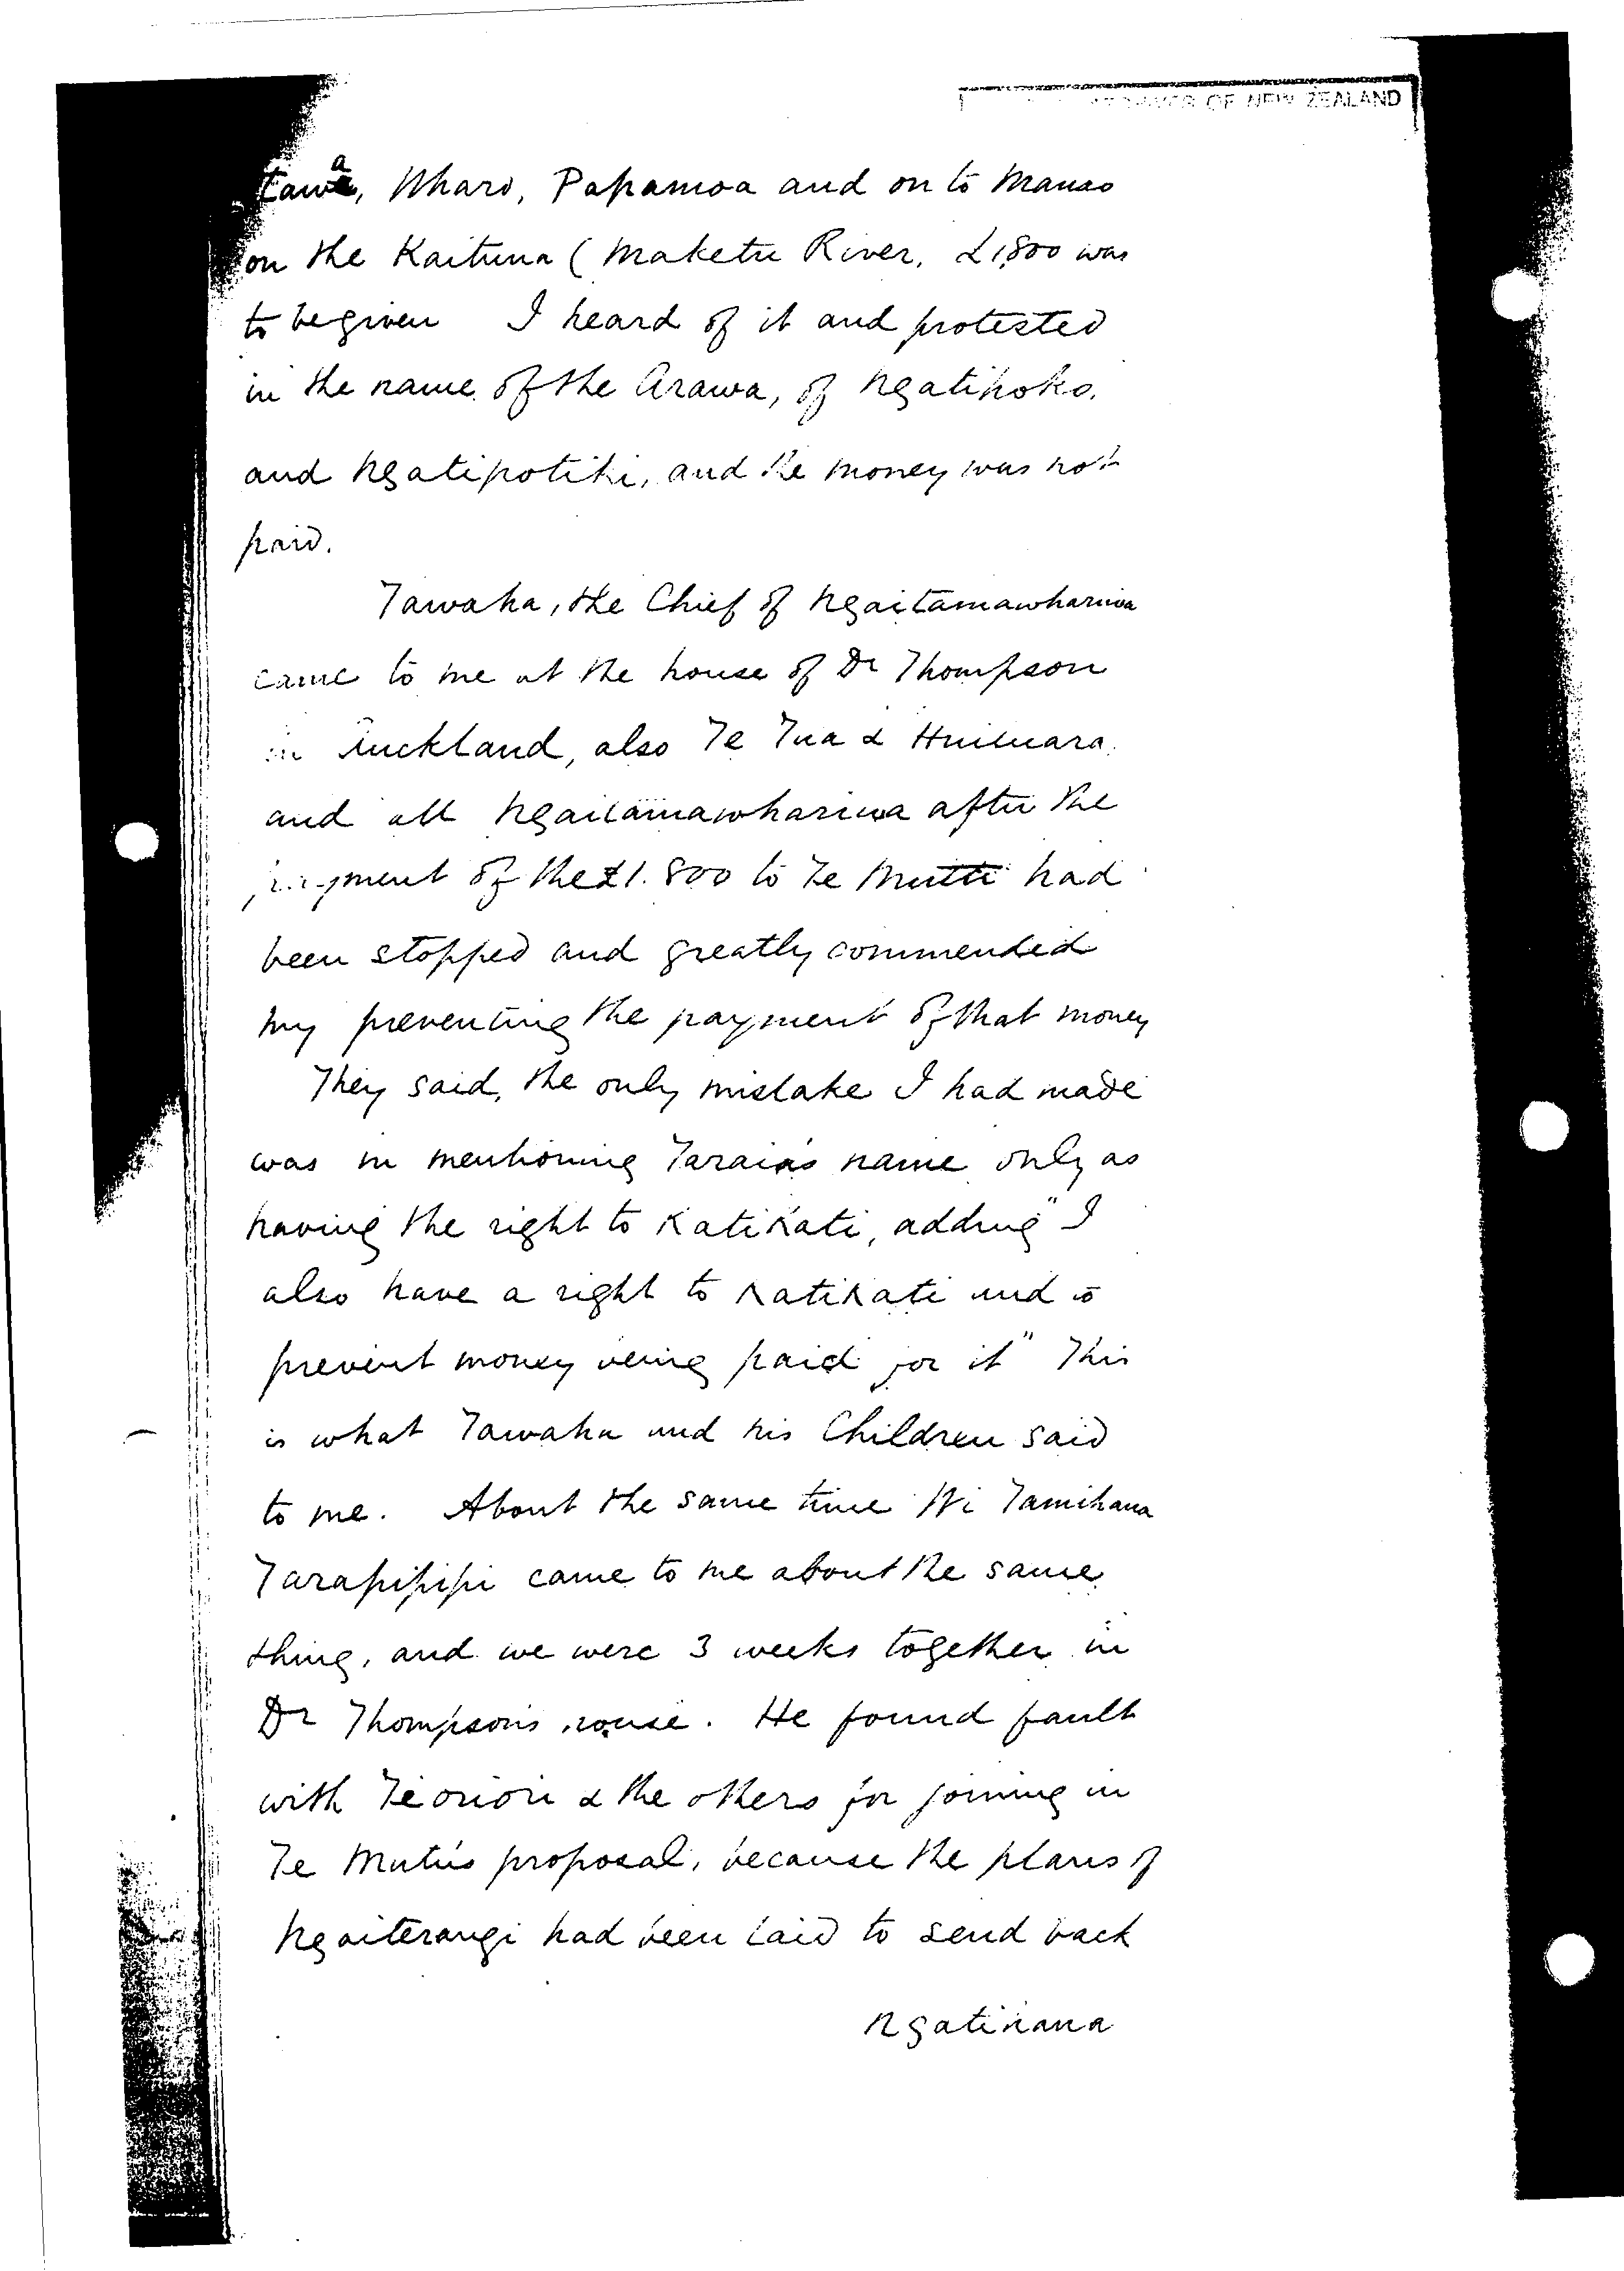 OF NEW ZEALAND
tawa, Wharo, Papamoa and on to Manao
on the Kaituna ( Maketu River, £1,800 was
to be given I heard of it and protested
in the name of the Arawa, of Ngatihoko,
and Ngatipotiki, and the money was not
paid.
Tawaha, the Chief of Ngaitamawhariua
came to me at the house of Dr Thompson
in Auckland, also Te Tua & Huituara
and all Ngaitamawhariua after the
payment of the £1.800 to Te Mutu had
been stopped and greatly commended
my preventing the payment of that money
They said, the only mistake I had made
was in mentioning Taraia's name only as
having the right to Katikati, adding "I
also have a right to Katikati and to
prevent money being paid for it" This
is what Tawaha and his Children said
to me. About the same time Wi Tamihana
Tarapipipi came to me about the same
thing, and we were 3 weeks together in
Dr Thompson's house. He found fault
with Te Oriori & the others for joining in
Te Mutu's proposal, because the plans of
Ngaiterangi had been laid to send back
Ngatihaua